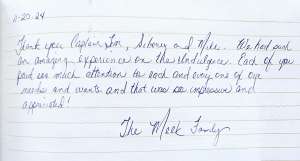 11-20-24
Thank you Captain Jon, Sidney and Mike. We had such
an amazing experience on the Indulgence. Each of you
paid so much attention to each and every one of our
needs and wants and that was so impressive and
appreciated!
The Meek Family